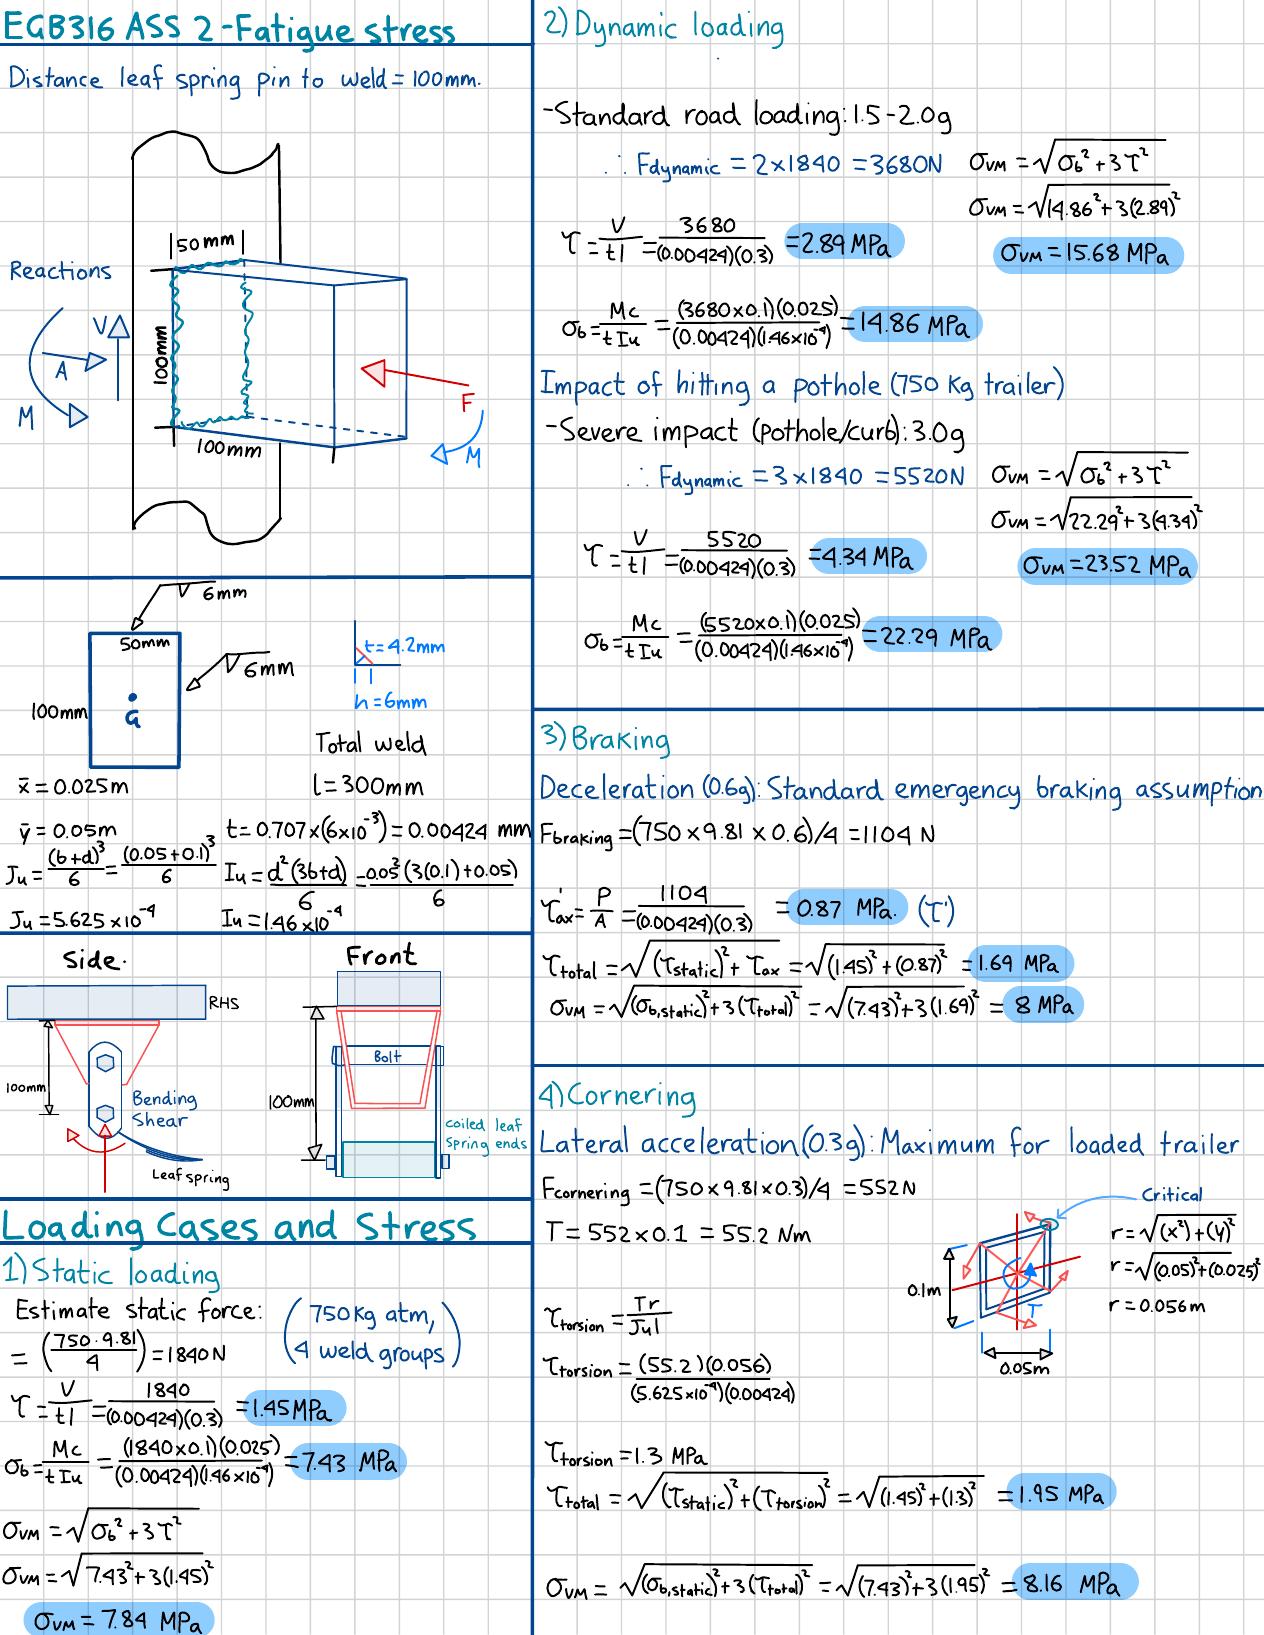 EGB316 ASS 2 - Fatigue stress
Distance leaf spring pin to weld = 100mm.
50mm
Reactions
V
A
M
100mm
100mm
F
M
6mm
50mm
6mm
100mm
G
t=4.2mm
h=6mm
Total weld
x̄ = 0.025m
l = 300mm
ȳ = 0.05m
t = 0.707×(6×10⁻³) = 0.00424 mm
Ju = (b+d)³/6 = (0.05+0.1)³/6
Iu = d²(3b+d)/6 = 0.05²(3(0.1)+0.05)/6
Ju = 5.625×10⁻⁴
Iu = 1.46×10⁻⁴
Side.
Front
RHS
100mm
Bending
Shear
Leaf spring
Bolt
100mm
coiled leaf
spring ends
Loading Cases and Stress
1) Static loading
Estimate static force:
(750Kg atm,
4 weld groups)
= (750·9.81/4) = 1840N
τ = V/tl = 1840/(0.00424)(0.3) = 1.45MPa
σb = Mc/tIu = (1840×0.1)(0.025)/(0.00424)(1.46×10⁻⁴) = 7.43 MPa
σVM = √σb²+3τ²
σVM = √7.43²+3(1.45)²
σVM = 7.84 MPa
2) Dynamic loading
-Standard road loading: 1.5-2.0g
∴ Fdynamic = 2×1840 = 3680N
σVM = √σb²+3τ²
σVM = √14.86²+3(2.89)²
τ = V/tl = 3680/(0.00424)(0.3) = 2.89 MPa
σVM = 15.68 MPa
σb = Mc/tIu = (3680×0.1)(0.025)/(0.00424)(1.46×10⁻⁴) = 14.86 MPa
Impact of hitting a pothole (750 Kg trailer)
-Severe impact (pothole/curb): 3.0g
∴ Fdynamic = 3×1840 = 5520N
σVM = √σb²+3τ²
σVM = √22.29²+3(4.34)²
τ = V/tl = 5520/(0.00424)(0.3) = 4.34 MPa
σVM = 23.52 MPa
σb = Mc/tIu = (5520×0.1)(0.025)/(0.00424)(1.46×10⁻⁴) = 22.29 MPa
3) Braking
Deceleration (0.6g): Standard emergency braking assumption
Fbraking = (750×9.81×0.6)/4 = 1104 N
τ'ax = P/A = 1104/(0.00424)(0.3) = 0.87 MPa. (τ')
τtotal = √(τstatic)²+τax = √(1.45)²+(0.87)² = 1.69 MPa
σVM = √(σb,static)²+3(τtotal)² = √(7.43)²+3(1.69)² = 8 MPa
4) Cornering
Lateral acceleration (0.3g): Maximum for loaded trailer
Fcornering = (750×9.81×0.3)/4 = 552N
Critical
T = 552×0.1 = 55.2 Nm
r = √(x²)+(y)²
r = √(0.05)²+(0.025)²
r = 0.056m
0.1m
T
0.05m
τtorsion = Tr/Jul
τtorsion = (55.2)(0.056)/(5.625×10⁻⁴)(0.00424)
τtorsion = 1.3 MPa
τtotal = √(τstatic)²+(τtorsion)² = √(1.45)²+(1.3)² = 1.95 MPa
σVM = √(σb,static)²+3(τtotal)² = √(7.43)²+3(1.95)² = 8.16 MPa